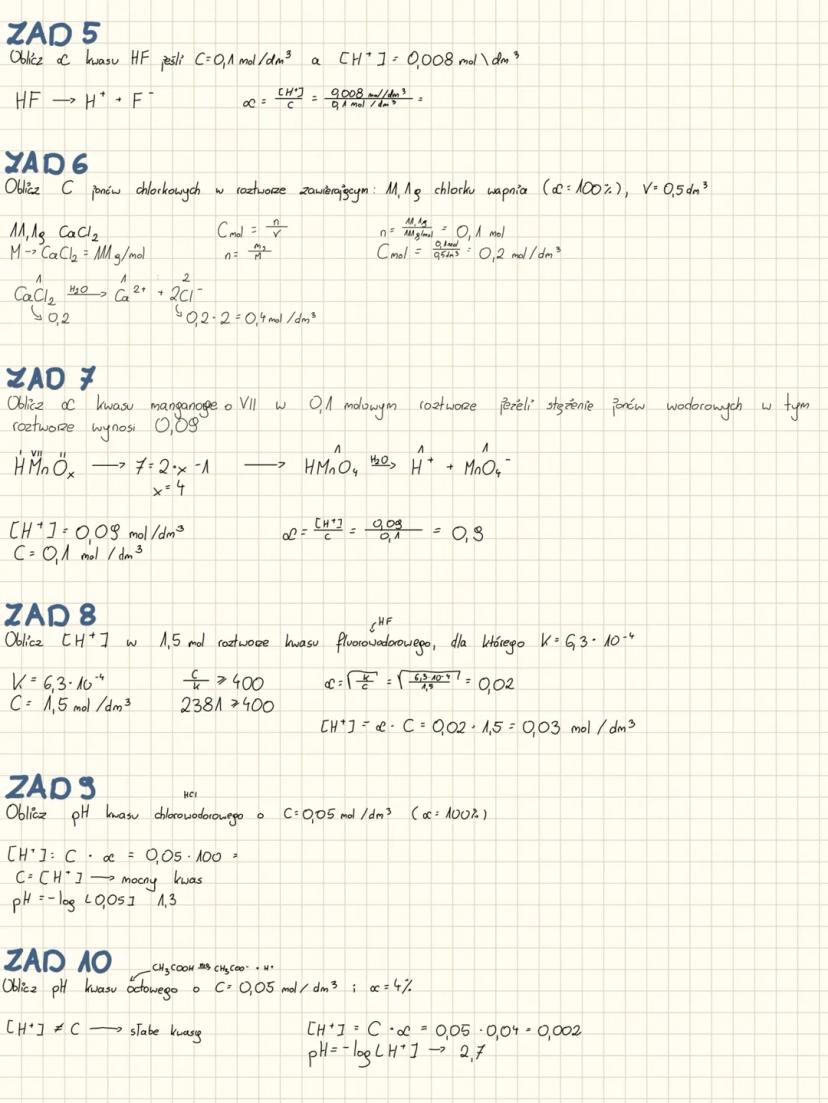 ZAD 5
Oblicz α kwasu HF jeśli C=0,1 mol/dm³ a [H⁺] = 0,008 mol\dm³
HF → H⁺ + F⁻ α = [H⁺]/C = 0,008 mol/dm³ / 0,1 mol/dm³ =
ZAD 6
Oblicz C jonów chlorkowych w roztworze zawierającym: 11,1g chlorku wapnia (α=100%), V=0,5dm³
11,1g CaCl₂ Cmol = n/V n = 11,1g / 111g/mol = 0,1 mol
M → CaCl₂ = 111 g/mol n = ms/M Cmol = 0,1mol / 0,5dm³ = 0,2 mol/dm³
1 1 2
CaCl₂ H₂O→ Ca²⁺ + 2Cl⁻
↳ 0,2 ↳ 0,2 · 2 = 0,4 mol/dm³
ZAD 7
Oblicz α kwasu manganowego VII w 0,1 molowym roztworze jeżeli stężenie jonów wodorowych w tym
roztworze wynosi 0,09
I VII II 1 1
HMnOₓ → 7 = 2·x -1 → HMnO₄ H₂O→ H⁺ + MnO₄⁻
x = 4
[H⁺] = 0,09 mol/dm³ α = [H⁺]/C = 0,09/0,1 = 0,9
C = 0,1 mol/dm³
ZAD 8
HF
Oblicz [H⁺] w 1,5 mol roztworze kwasu fluorowodorowego, dla którego K = 6,3 · 10⁻⁴
K = 6,3 · 10⁻⁴ C/K ≥ 400 α = √(K/C) = √(6,3·10⁻⁴/1,5) = 0,02
C = 1,5 mol/dm³ 2381 ≥ 400
[H⁺] = α · C = 0,02 · 1,5 = 0,03 mol/dm³
ZAD 9
HCl
Oblicz pH kwasu chlorowodorowego o C=0,05 mol/dm³ (α = 100%)
[H⁺]: C · α = 0,05 · 100 =
C = [H⁺] → mocny kwas
pH = -log [0,05] 1,3
ZAD 10
CH₃COOH H₂O→ CH₃COO⁻ + H⁺
Oblicz pH kwasu octowego o C= 0,05 mol/dm³ i α=4%
[H⁺] ≠ C → słabe kwasy [H⁺] = C · α = 0,05 · 0,04 = 0,002
pH = -log[H⁺] → 2,7